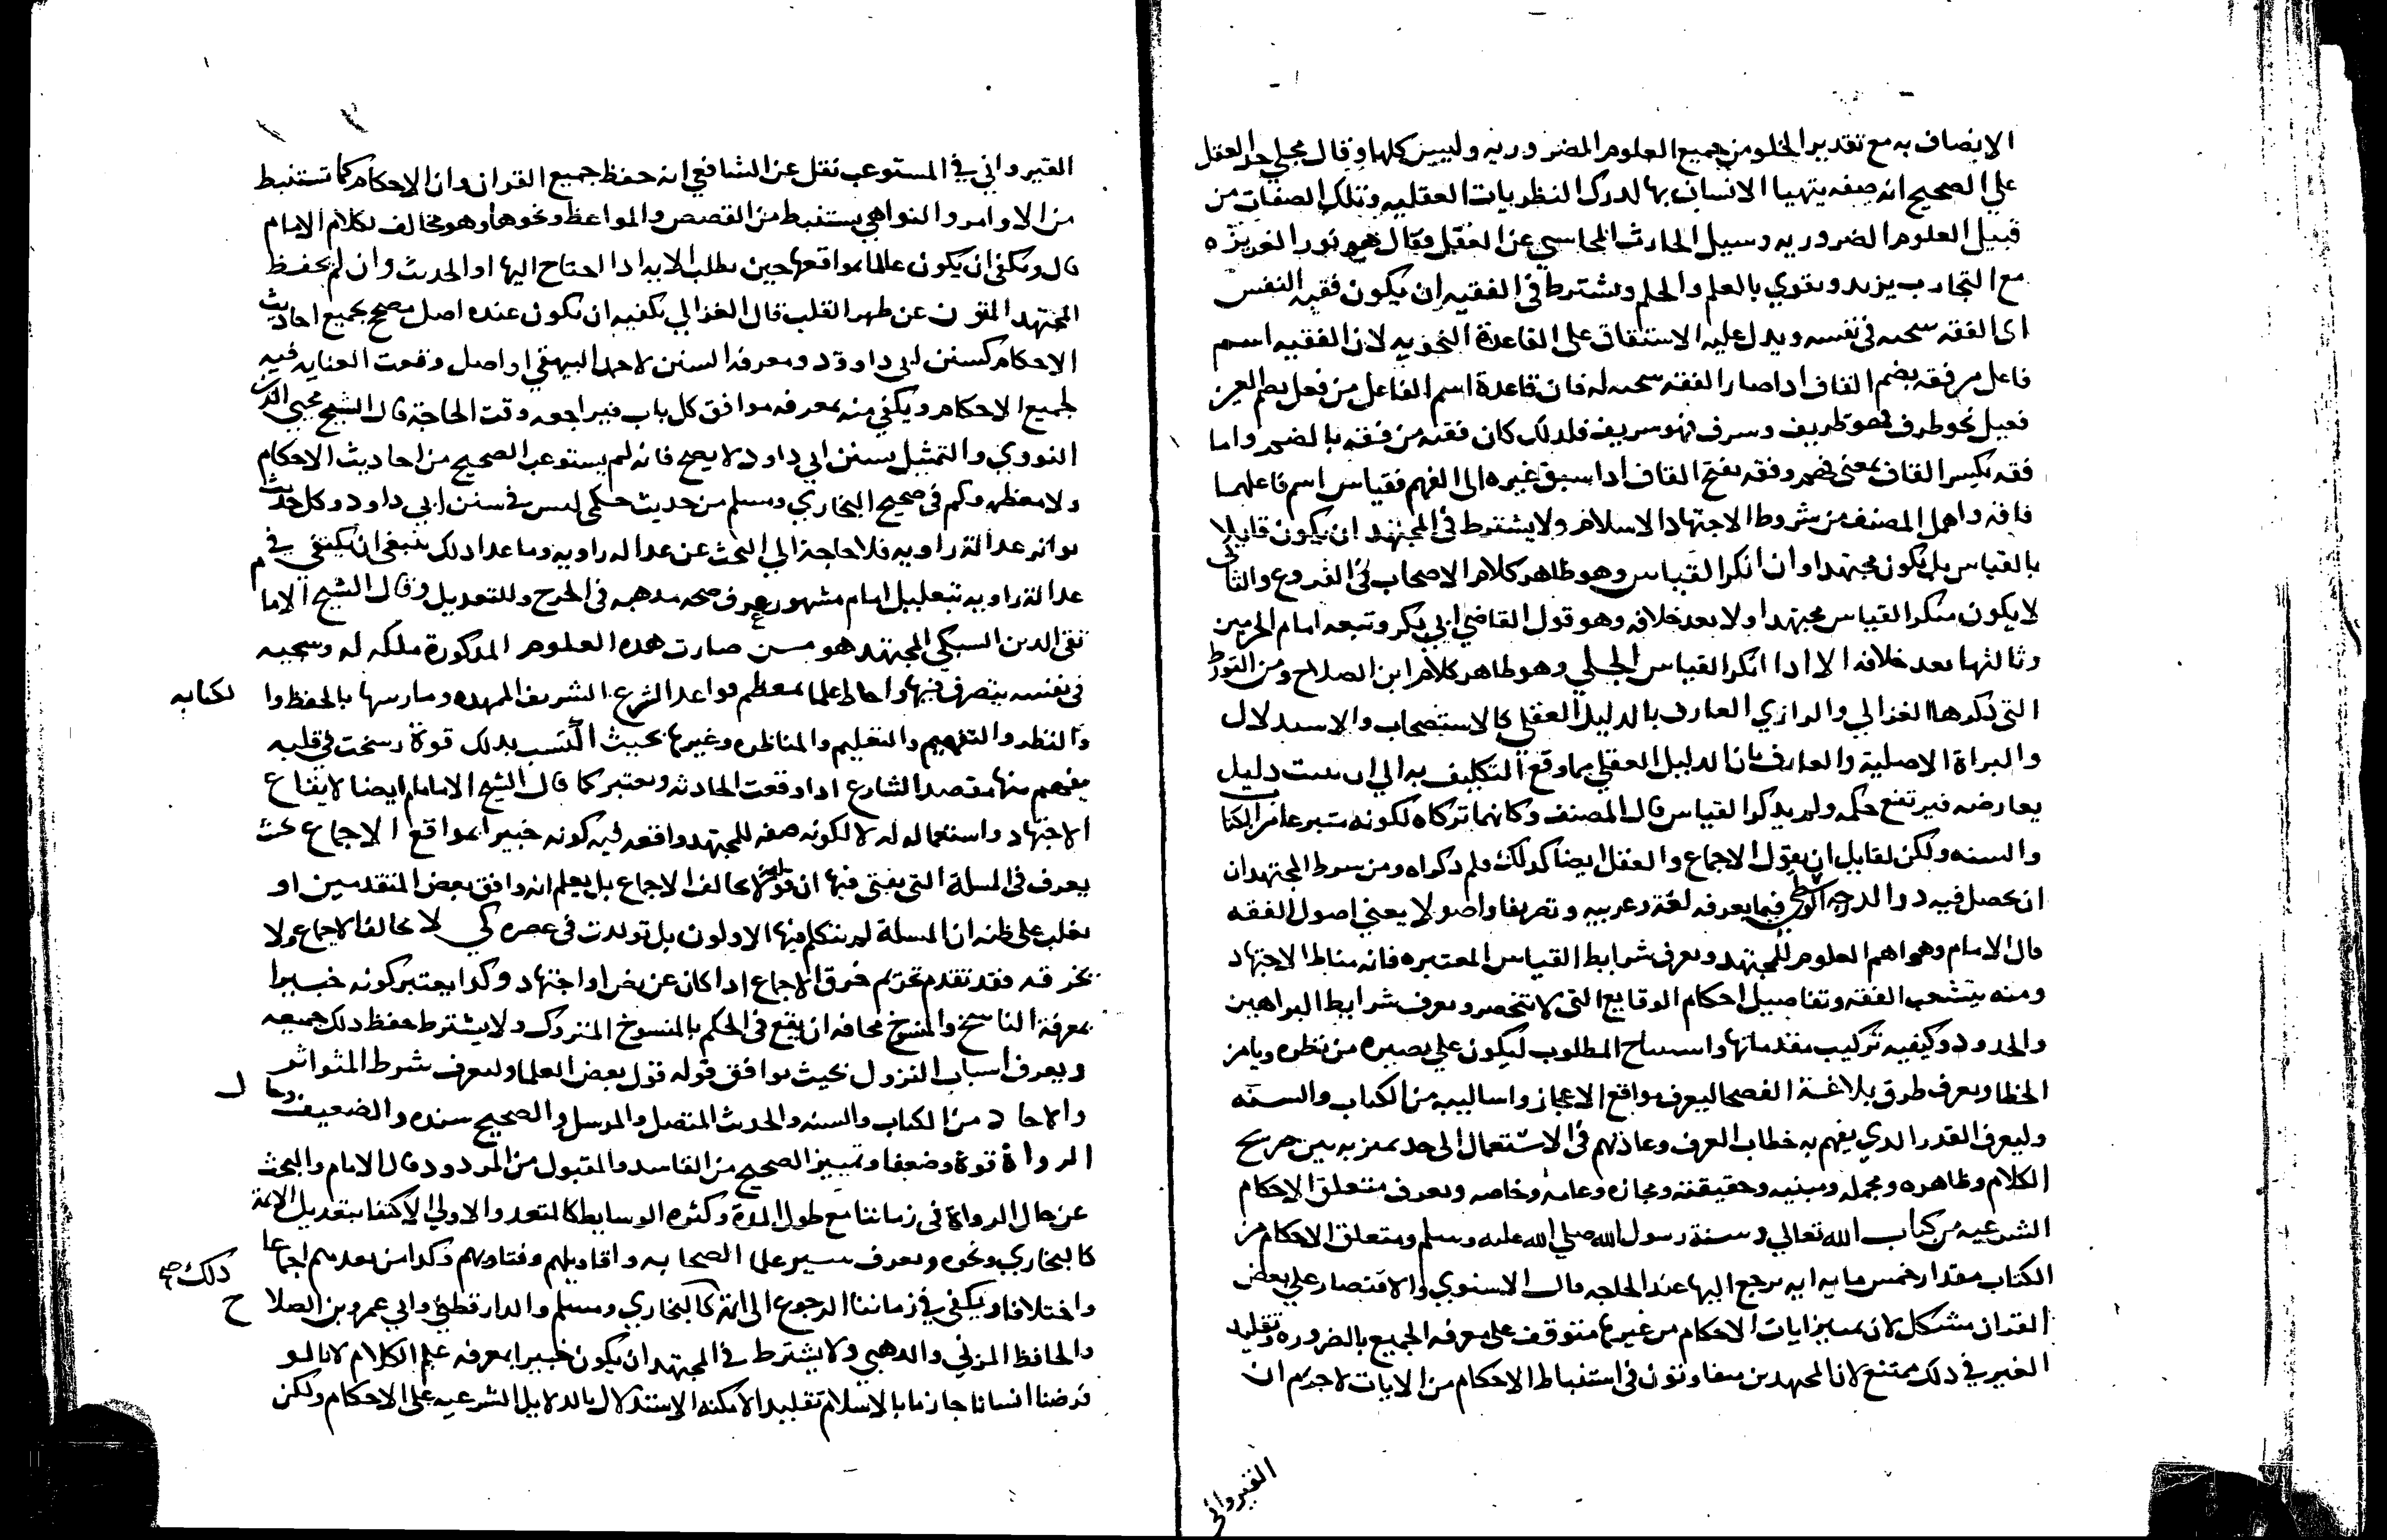 الاتصاف به مع تقدير الخلو من جميع العلوم الضروريه وليس كلها وقال مجلي حد العقل
علي الصحيح انه صفه يتهيا الانسان بها لدرك النظريات العقليه وتلك الصفات من
قبيل العلوم الضروريه وسيل الحارث المحاسبي عن العقل وقال هو نور الغريزه
مع التجارب يزيد ويقوي بالعلم والحلم ويشترط في الفقيه ان يكون فقيه النفس
اي الفقه سجيه في نفسه ويدل عليه الاشتقاق على القاعدة النحويه لان الفقيه اسم
فاعل من فقه بضم القاف اذا صار الفقه سجيه له فان قاعدة اسم الفاعل من فعل بضم العين
فعيل نحو ظرف فهو ظريف وشرف فهو شريف فلذلك كان فقيه من فقه بالضم واما
فقه بكسر القاف بمعنى فهم وفقه بفتح القاف اذا سبق غيره الى الفهم فقياس اسم فاعلهما
فاقه واهمل المصنف من شروط الاجتهاد الاسلام ولا يشترط في المجتهد ان يكون قايلا
بالقياس بل يكون مجتهدا وان انكر القياس وهو ظاهر كلام الاصحاب في الفروع والثاني
لا يكون منكر القياس مجتهدا ولا يعد خلافه وهو قول القاضي ابي بكر وتبعه امام الحرمين
وثالثها يعد خلافه الا اذا انكر القياس الجلي وهو ظاهر كلام ابن الصلاح ومن الشروط
التي ذكرها الغزالي والرازي العارف بالدليل العقلي كالاستصحاب والاستدلال
والبراة الاصلية والعارف بان الدليل العقلي مما وقع التكليف به الى ان يثبت دليل
يعارضه فيرتفع حكمه ولم يذكرا القياس قال المصنف وكانهما تركاه لكونه متفرعا من الكتاب
والسنه ولكن لقايل ان يقول الاجماع والعقل ايضا كذلك فلم ذكراه ومن شرط المجتهد ان
ان يحصل فيه ذو الدرجه الوسطي فيما يعرفه لغة وعربيه وتصريفا واصولا يعني اصول الفقه
قال الامام وهو اهم العلوم للمجتهد ويعرف شرايط القياس المعتبره فانه مناط الاجتهاد
ومنه يتشعب الفقه وتفاصيل احكام الوقايع التي لا تنحصر ويعرف شرايط البراهين
والحدود وكيفيه تركيب مقدماتها واستنتاج المطلوب ليكون على بصيره من نظره ويامن
الخطا ويعرف طرق بلاغة الفصحا ليعرف مواقع الاعجاز واساليبه من الكتاب والسنه
وليعرف القدر الذي يفهم به خطاب العرف وعادتهم في الاستعمال الى حد يميز به بين صريح
الكلام وظاهره ومجمله ومبينه وحقيقته ومجازه وعامه وخاصه ويعرف متعلق الاحكام
الشرعيه من كتاب الله تعالي وسنة رسول الله صلي الله عليه وسلم ومتعلق الاحكام من
الكتاب مقدار خمس مايه ايه يرجع اليها عند الحاجه قال الاسنوي والاقتصار علي بعض
القران مشكل لان تمييز ايات الاحكام من غيرها متوقف على معرفه الجميع بالضروره وتقليد
الغير في ذلك ممتنع لان المجتهدين متفاوتون في استنباط الاحكام من الايات لا جرم ان
القيرواني
القيرواني في المستوعب نقل عن الشافعي انه حفظ جميع القران وان الاحكام كما تستنبط
من الاوامر والنواهي يستنبط من القصص والمواعظ ونحوها وهو مخالف لكلام الامام
قال ويكفي ان يكون عالما بمواقعها حين يطلب الايه اذا احتاج اليها او الحديث وان لم يحفظ
المجتهد المتون عن ظهر القلب قال الغزالي يكفيه ان يكون عنده اصل مصحح بجميع احاديث
الاحكام كسنن ابي داوود ومعرفه السنن لاحمد البيهقي او اصل وقعت العنايه فيه
لجميع الاحكام ويكفي منه بمعرفه مواقع كل باب فيراجعه وقت الحاجة قال الشيخ محيي الدين
النووي والتمثيل بسنن ابي داود لا يصح فانه لم يستوعب الصحيح من احاديث الاحكام
ولا معظمه وكم في صحيح البخاري ومسلم من حديث حكمي ليس في سنن ابي داود وكل حديث
تواتر عدالة راويه فلا حاجة الي البحث عن عداله راويه وما عدا ذلك ينبغي ان يكتفي في
عدالة راويه بتعديل امام مشهور عرف صحه مذهبه في الجرح والتعديل وقال الشيخ الامام
تقي الدين السبكي المجتهد هو من صارت هذه العلوم المذكورة ملكه له وسجيه
في نفسه يتصرف فيها واحاط علما بمعظم قواعد الشرع الشريف الممهده ومارسها بالحفظ وا لكتابه
والنظر والتفهيم والتعليم والمناظره وغيرها بحيث اكتسب بذلك قوة رسخت في قلبه
يفهم منها مقصد الشارع اذا وقعت الحادثه ويعتبر كما قال الشيخ الامام ايضا لايقاع
الاجتهاد واستعماله له لا لكونه صفه للمجتهد واقعه فيه كونه خبيرا بمواقع الاجماع بحيث
يعرف في المسلة التي يفتي فيها ان قوله لا يخالف الاجماع بل يعلم انه وافق بعض المتقدمين او
يغلب على ظنه ان المسلة لم يتكلم فيها الاولون بل تولدت في عصره كي لا يخالف الاجماع ولا
يخرقه فقد تقدم تحريم خرق الاجماع اذا كان عن نص او اجتهاد وكذا يعتبر كونه خبيرا
بمعرفة الناسخ والمنسوخ مخافه ان يقع في الحكم بالمنسوخ المتروك ولا يشترط حفظ ذلك جميعه
ويعرف اسباب النزول بحيث يوافق قوله قول بعض العلما وليعرف شرط المتواتر
والاحاد من الكتاب والسنه والحديث المتصل والمرسل والصحيح سنده والضعيف وحال
الرواة قوة وضعفا وتمييز الصحيح من الفاسد والمقبول من المردود قال الامام والبحث
عن حال الرواة في زماننا مع طول المدة وكثره الوسايط كالمتعذر والاولي الاكتفا بتعديل الايمة
كالبخاري ونحوه ويعرف سير علما الصحابه واقاويلهم وفتاويهم وكذا من بعدهم اجماعا
واختلافا ويكفي في زماننا الرجوع الى ايمة ذلك صح كالبخاري ومسلم والدارقطني وابي عمرو بن الصلاح
والحافظ المزني والذهبي ولا يشترط في المجتهد ان يكون خبيرا بمعرفه علم الكلام لانا لو
فرضنا انسانا جازما بالاسلام تقليدا لامكنه الاستدلال بالدلايل الشرعيه على الاحكام ولكن